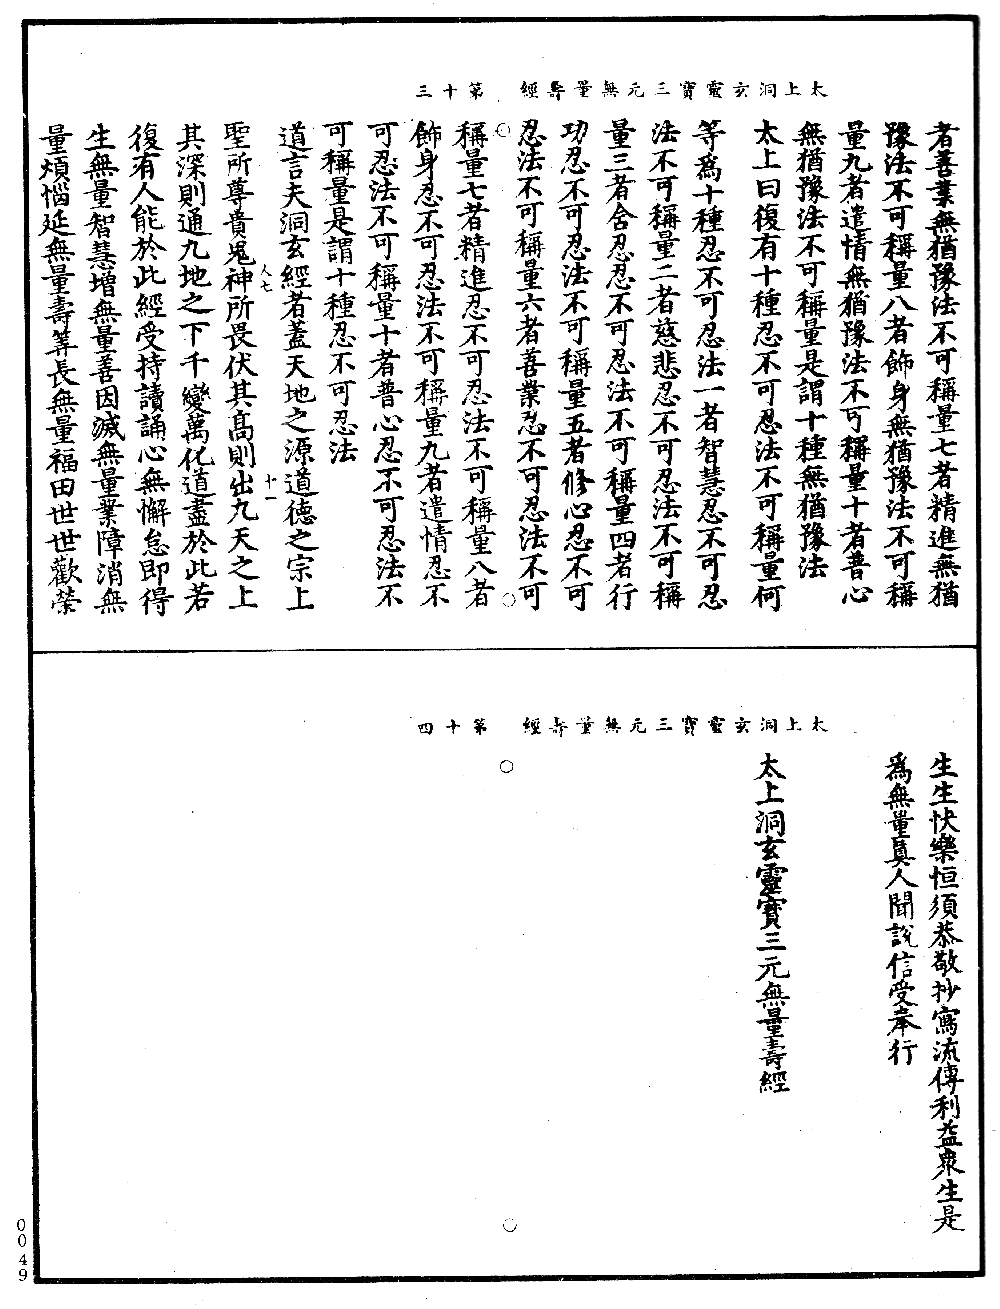 太上洞玄靈寶三元無量壽經　第十三
者善業無猶豫法不可稱量七者精進無猶
豫法不可稱量八者飾身無猶豫法不可稱
量九者遣情無猶豫法不可稱量十者普心
無猶豫法不可稱量是謂十種無猶豫法
太上曰復有十種忍不可忍法不可稱量何
等爲十種忍不可忍法一者智慧忍不可忍
法不可稱量二者慈悲忍不可忍法不可稱
量三者舍忍忍不可忍法不可稱量四者行
功忍不可忍法不可稱量五者修心忍不可
忍法不可稱量六者善業忍不可忍法不可
稱量七者精進忍不可忍法不可稱量八者
飾身忍不可忍法不可稱量九者遣情忍不
可忍法不可稱量十者普心忍不可忍法不
可稱量是謂十種忍不可忍法
道言夫洞玄經者蓋天地之源道德之宗上
人七
十一
聖所尊貴鬼神所畏伏其高則出九天之上
其深則通九地之下千變萬化道盡於此若
復有人能於此經受持讀誦心無懈怠即得
生無量智慧增無量善因滅無量業障消無
量煩惱延無量壽筭長無量福田世世歡榮
太上洞玄靈寶三元無量壽經　第十四
生生快樂恒須恭敬抄寫流傳利益衆生是
爲無量眞人聞說信受奉行
太上洞玄靈寶三元無量壽經
0049